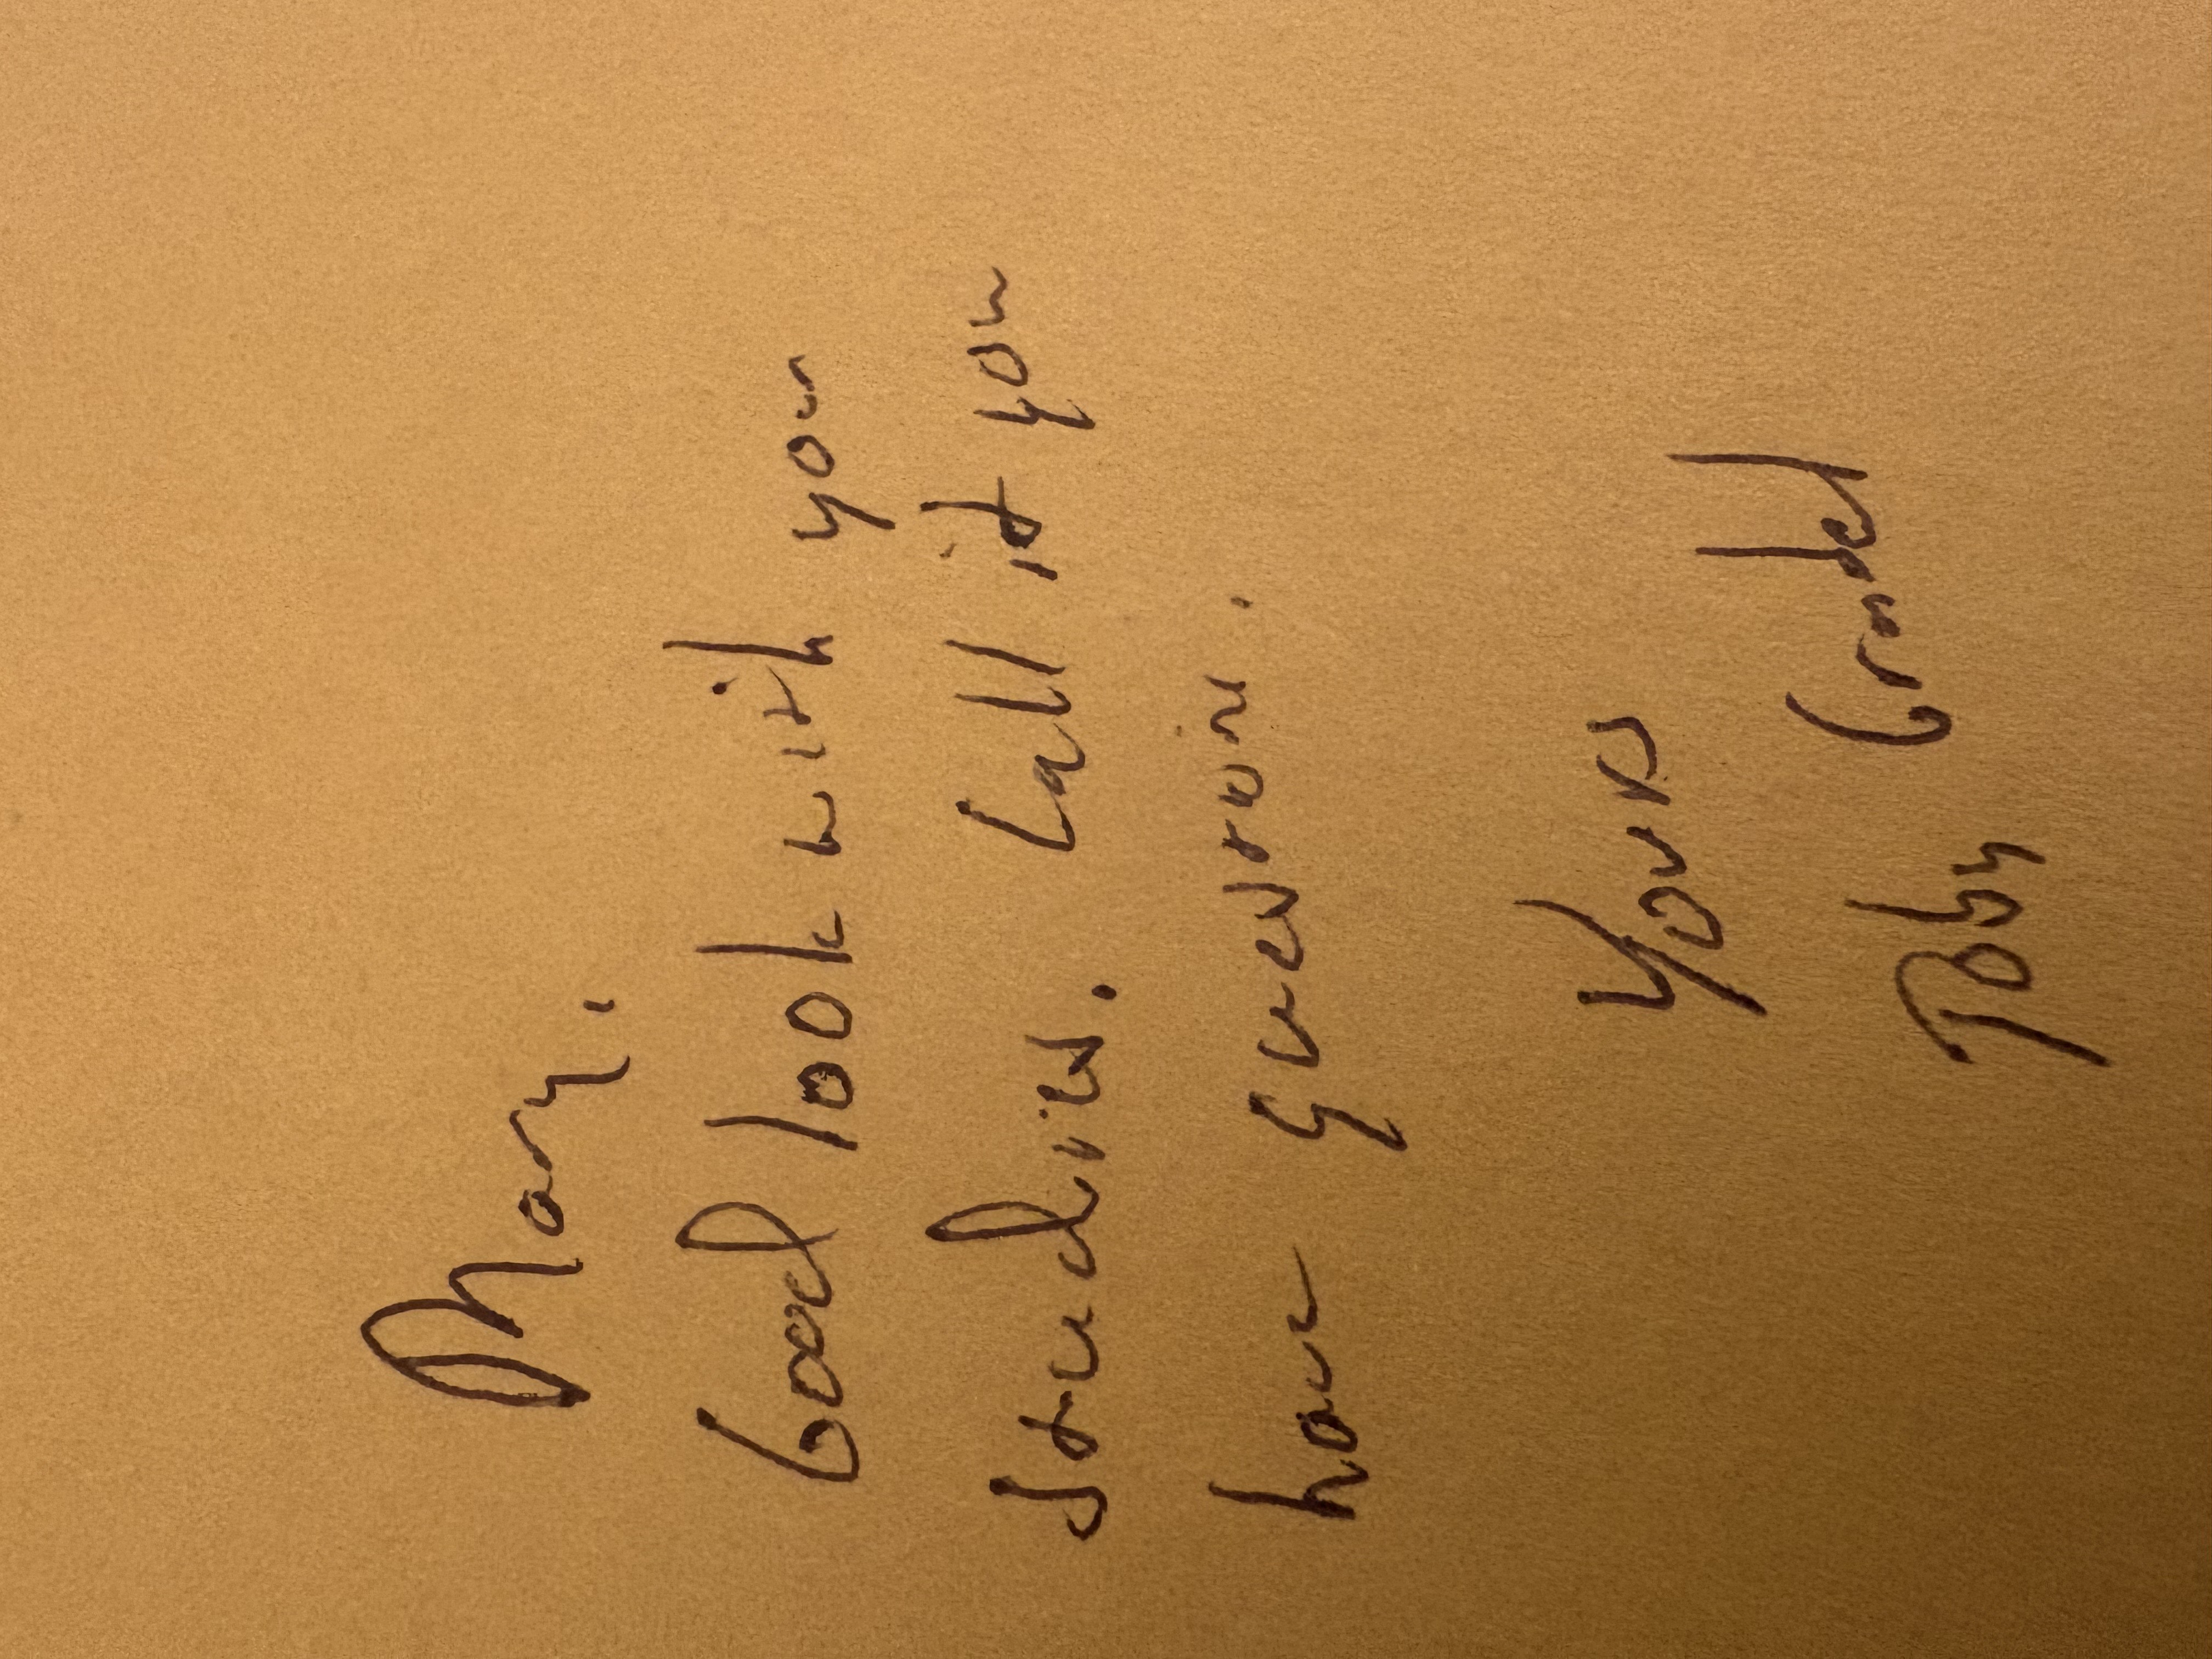 Mary,
Good look with you
studies. Call id you
have questions.
Yours
Toby Crabel